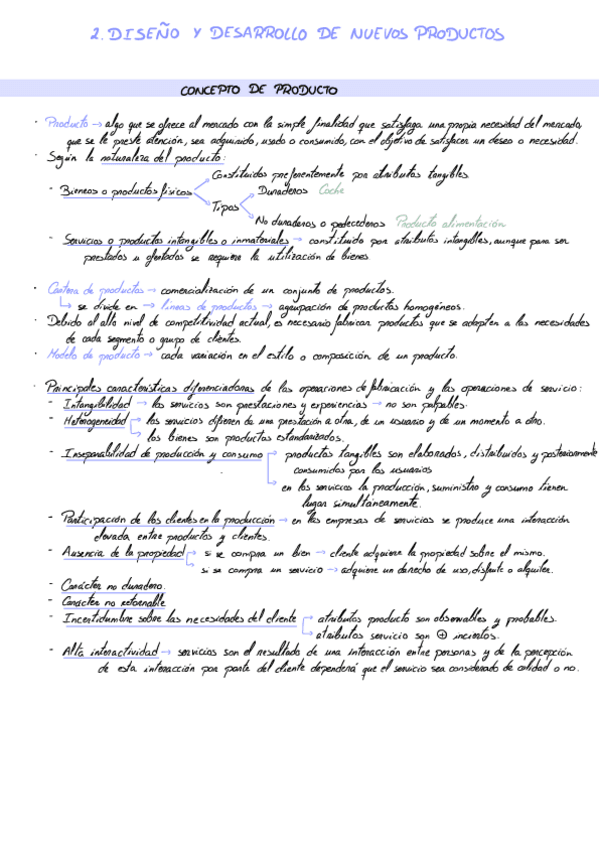 2. DISEÑO Y DESARROLLO DE NUEVOS PRODUCTOS
CONCEPTO DE PRODUCTO
· Producto → algo que se ofrece al mercado con la simple finalidad que satisfaga una propia necesidad del mercado,
que se le preste atención, sea adquirido, usado o consumido, con el objetivo de satisfacer un deseo o necesidad.
· Según la naturaleza del producto:
Constituidos preferentemente por atributos tangibles
- Bienes o productos físicos
Duraderos Coche
Tipos
No duraderos o perecederos Producto alimentación
- Servicios o productos intangibles o inmateriales → constituido por atributos intangibles, aunque para ser
prestados u ofertados se requiere la utilización de bienes
· Cartera de productos → comercialización de un conjunto de productos.
↳ se divide en → líneas de productos → agrupación de productos homogéneos.
· Debido al alto nivel de competitividad actual, es necesario fabricar productos que se adapten a las necesidades
de cada segmento o grupo de clientes.
· Modelo de producto → cada variación en el estilo o composición de un producto.
· Principales características diferenciadoras de las operaciones de fabricación y las operaciones de servicio:
- Intangibilidad → los servicios son prestaciones y experiencias → no son palpables.
- Heterogeneidad → los servicios difieren de una prestación a otra, de un usuario y de un momento a otro.
los bienes son productos estandarizados.
- Inseparabilidad de producción y consumo → productos tangibles son elaborados, distribuidos y posteriormente
consumidos por los usuarios
→ en los servicios la producción, suministro y consumo tienen
lugar simultáneamente.
- Participación de los clientes en la producción → en las empresas de servicios se produce una interacción
elevada entre productos y clientes.
- Ausencia de la propiedad → si se compra un bien → cliente adquiere la propiedad sobre el mismo.
si se compra un servicio → adquiere un derecho de uso, disfrute o alquiler.
- Carácter no duradero.
- Carácter no retornable
- Incertidumbre sobre las necesidades del cliente → atributos producto son observables y probables.
→ atributos servicio son ⊕ inciertos.
- Alta interactividad → servicios son el resultado de una interacción entre personas y de la percepción
de esta interacción por parte del cliente dependerá que el servicio sea considerado de calidad o no.